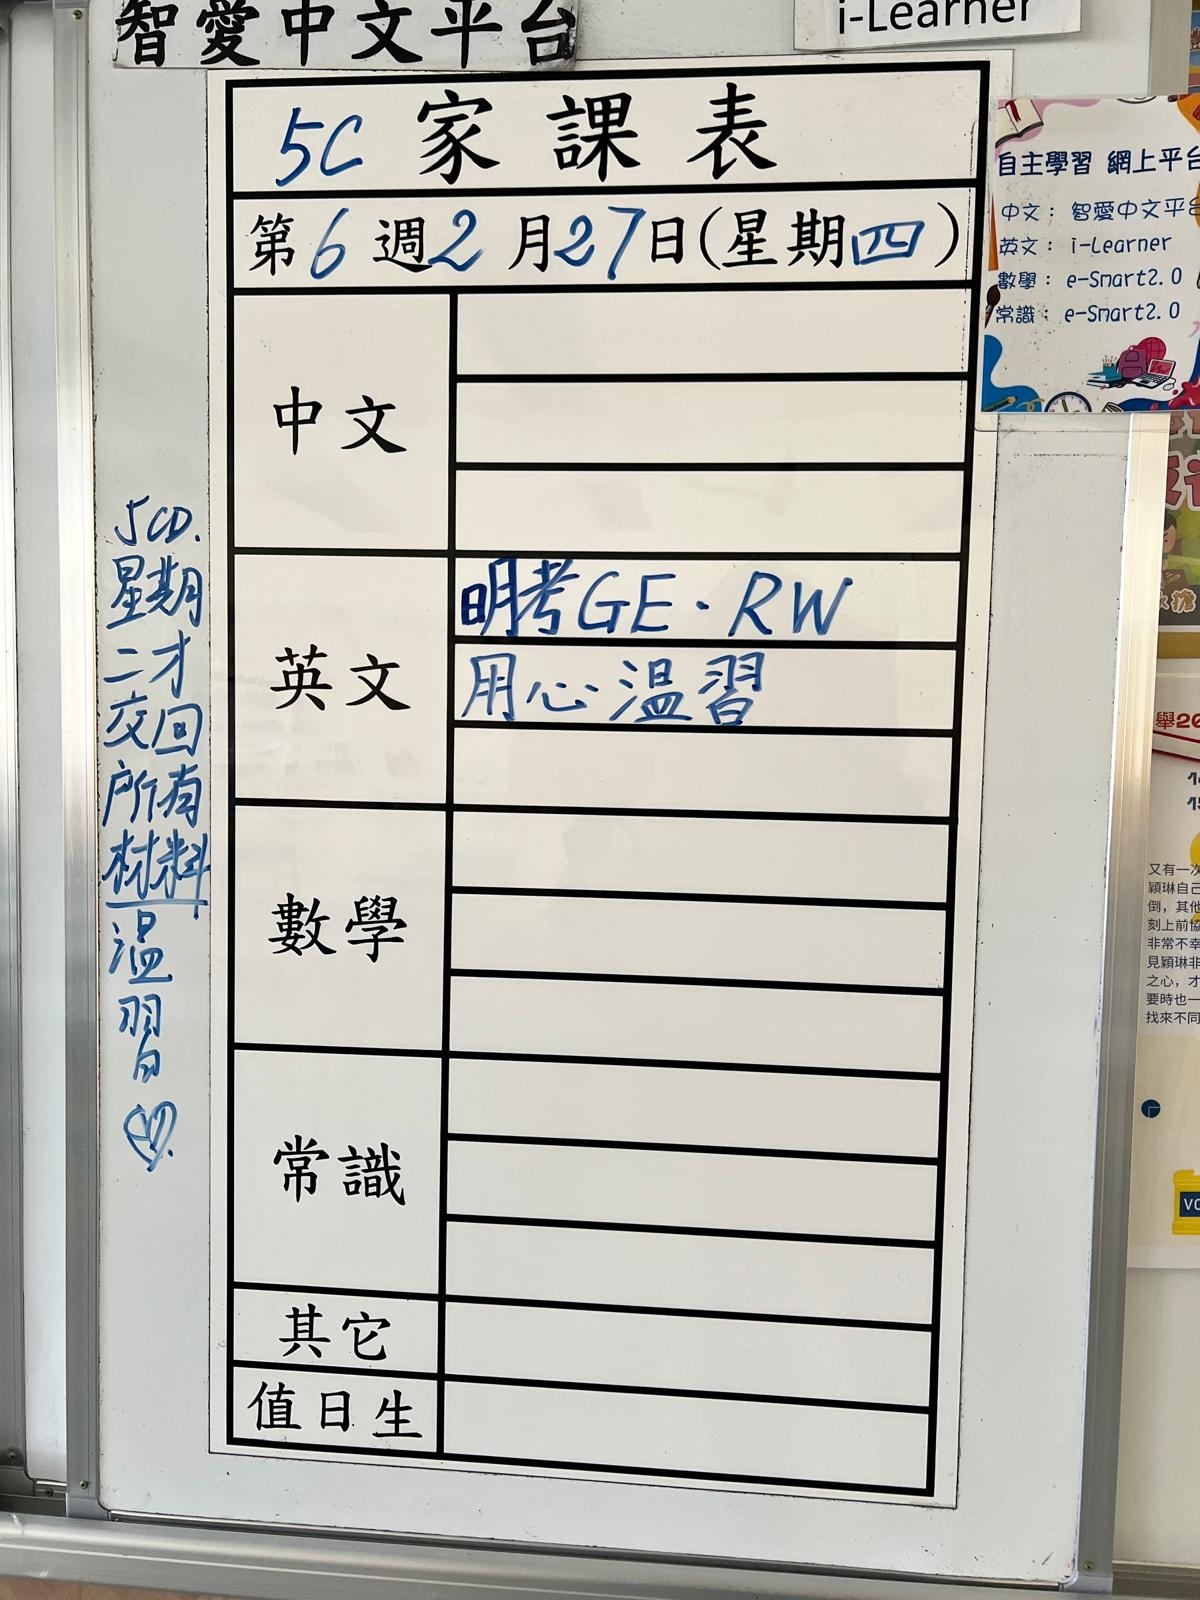 智愛中文平台
i-Learner
5C 家課表
第6週2月27日(星期四)
中文
英文
明考GE·RW
用心溫習
數學
常識
其它
值日生
5CD.
星期
二才
交回
所有
材料
溫
習
自主學習 網上平台
中文：智愛中文平台
英文：i-Learner
數學：e-Smart2.0
常識：e-Smart2.0
舉20
又有一次
穎琳自己
倒，其他
刻上前協
非常不幸
見穎琳非
之心，才
要時也一
找來不同